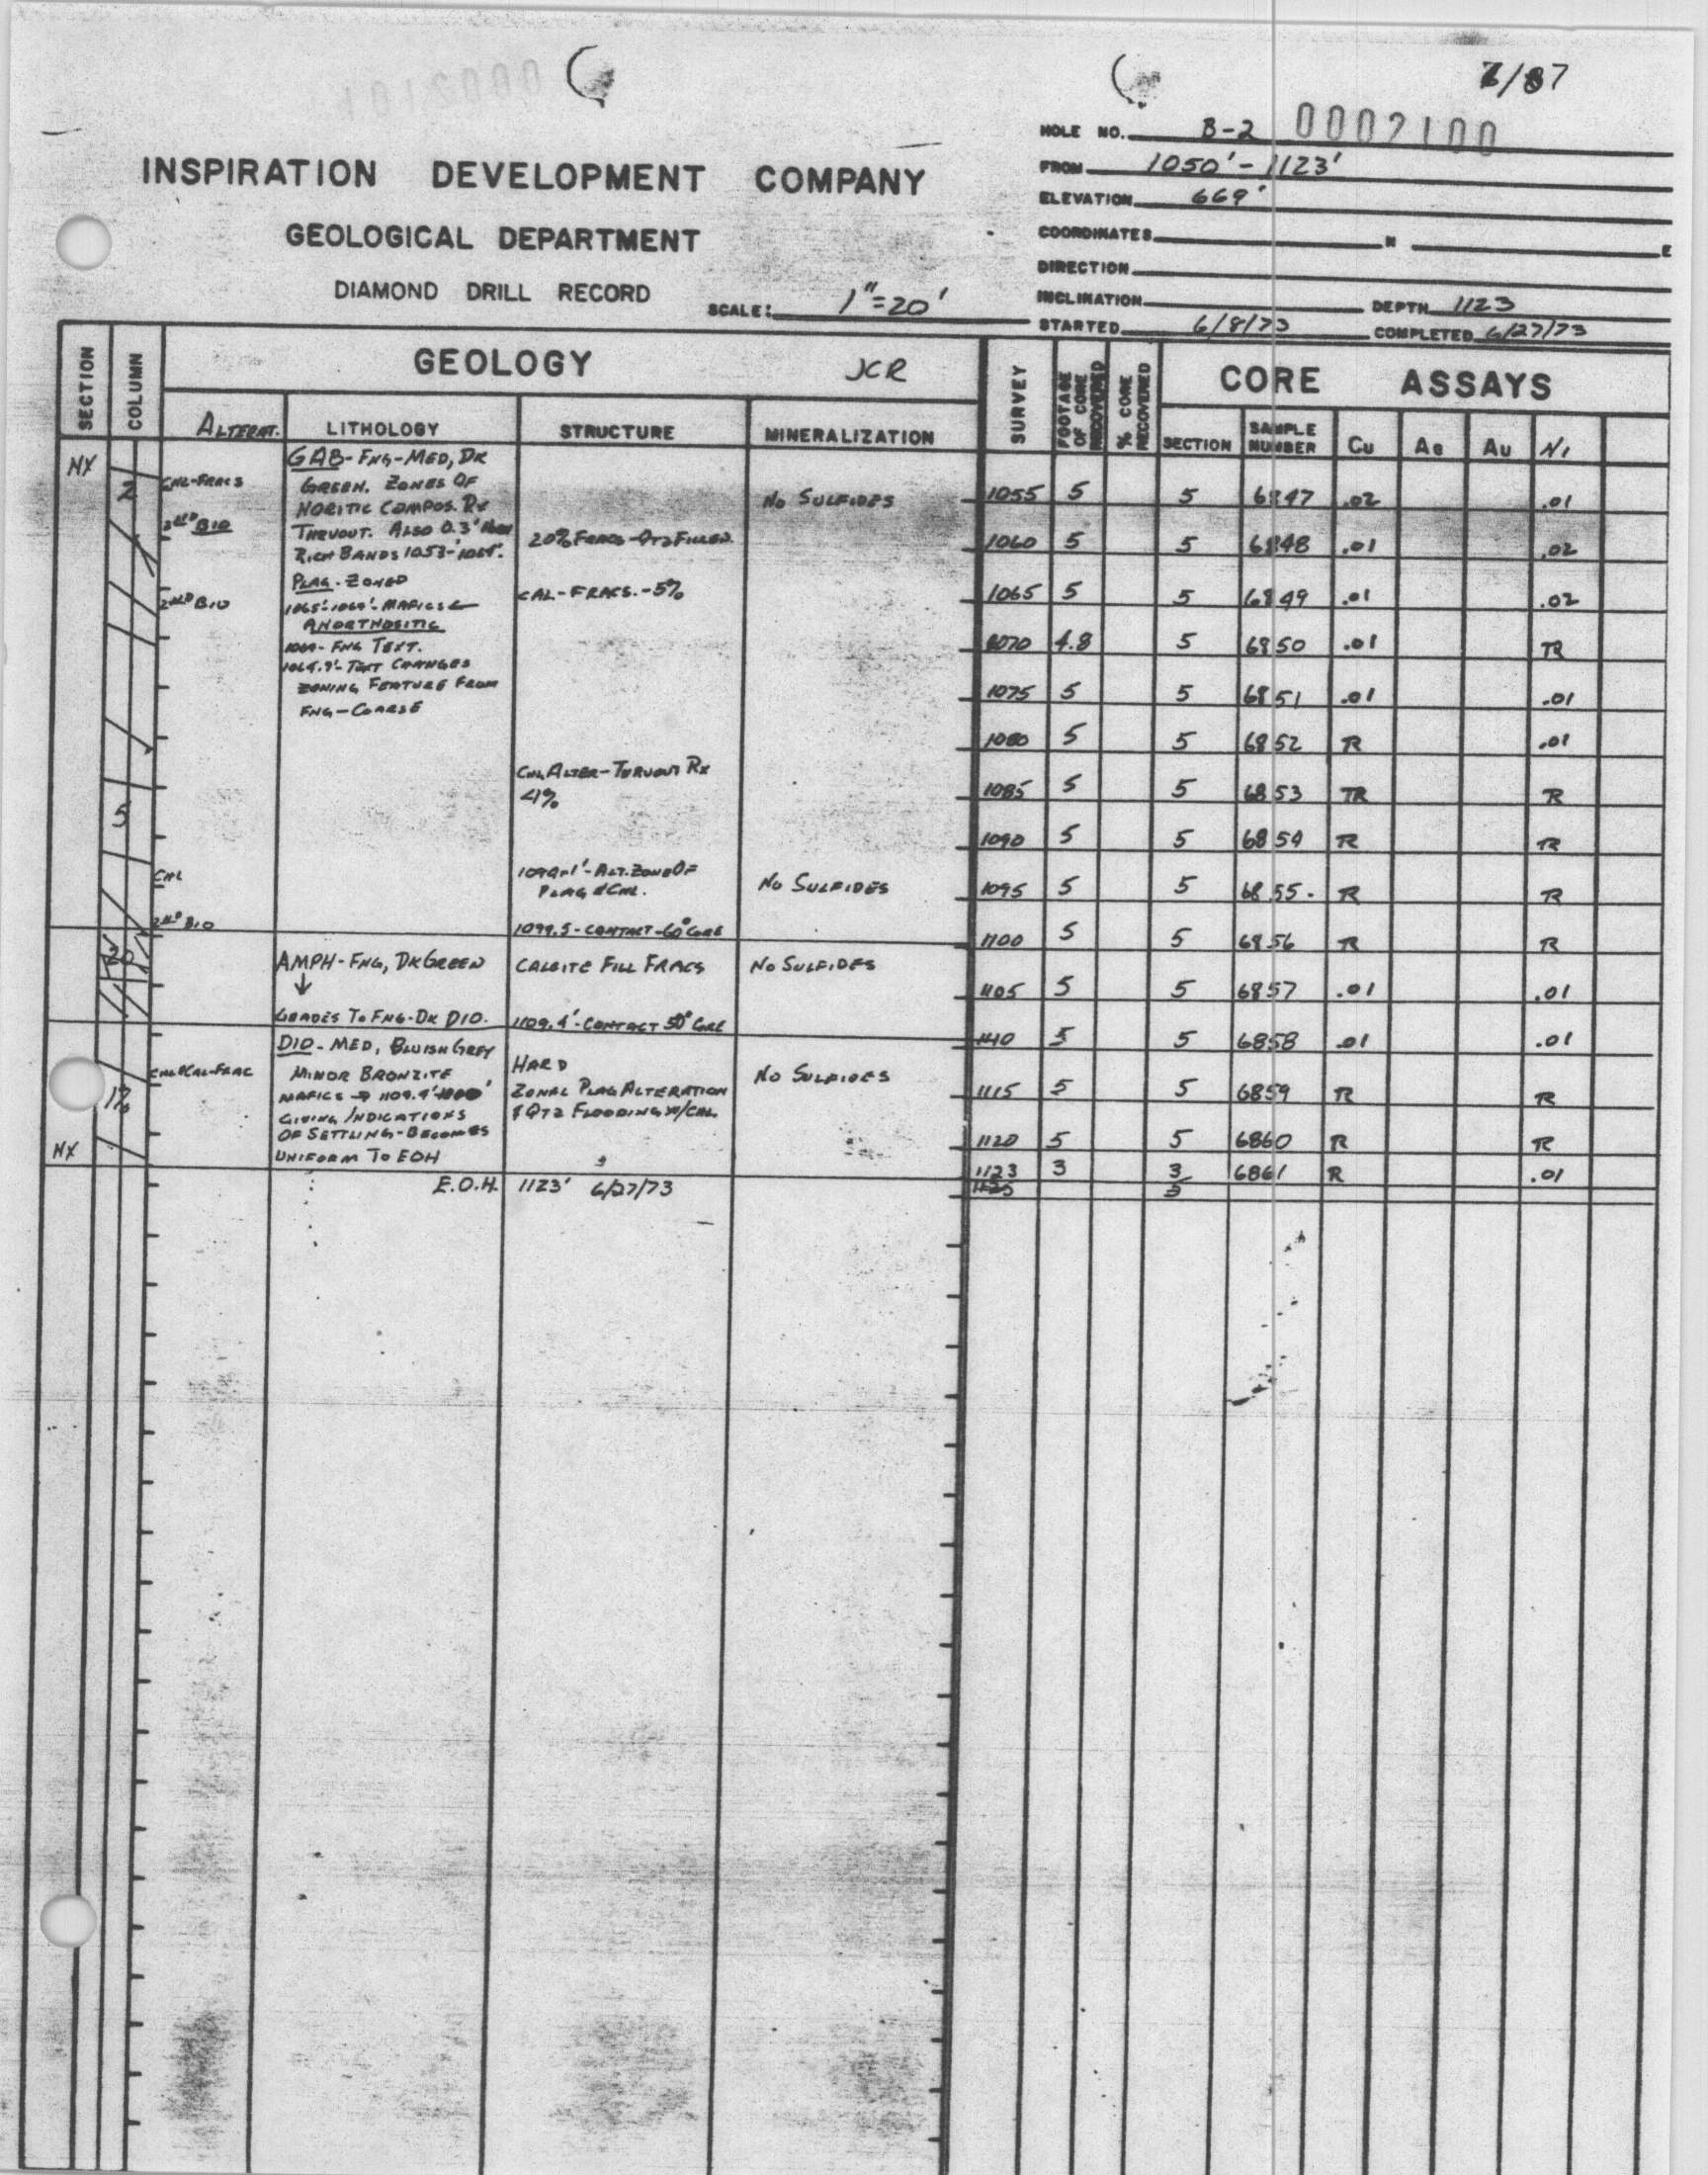 7/87
HOLE NO. B-2 0002100
INSPIRATION DEVELOPMENT COMPANY
FROM 1050'-1123'
ELEVATION 669'
GEOLOGICAL DEPARTMENT
COORDINATES N E
DIRECTION
DIAMOND DRILL RECORD
SCALE: 1"=20'
INCLINATION DEPTH 1123
STARTED 6/8/73 COMPLETED 6/27/73
SECTION
COLUMN
GEOLOGY JCR
SURVEY
FOOTAGE OF CORE RECOVERED
% CORE RECOVERED
CORE ASSAYS
ALTERAT. LITHOLOGY STRUCTURE MINERALIZATION
SECTION SAMPLE NUMBER Cu Ag Au Ni
NX
2
CHL-FRACS
2ND BIO
2ND BIO
GAB-FNG-MED, DK
GREEN. ZONES OF
NORITIC COMPOS. RX
THRUOUT. ALSO 0.3'
RICH BANDS 1053'-1065'.
PLAG-ZONED
1065'-1069'-MAFICS &
ANORTHOSITIC
1069-FNG TEXT.
1069.9'-TEXT CHANGES
ZONING FEATURE FROM
FNG-COARSE
20% FRACS-QTZ FILLED
CAL-FRACS.-5%
CHL ALTER-THRUOUT RX
<1%
1094-1'-ALT. ZONE OF
PLAG & CHL.
1099.5-CONTACT-60° CORE
NO SULFIDES
NO SULFIDES
5
CHL
2ND BIO
20
AMPH-FNG, DK GREEN
↓
GRADES TO FNG-DK DIO.
CALCITE FILL FRACS
1109.4'-CONTACT 50° CORE
NO SULFIDES
CHL&CAL-FRAC
1%
NX
DIO-MED, BLUISH GREY
MINOR BRONZITE
MAFICS → 1109.4'
GIVING INDICATIONS
OF SETTLING-BECOMES
UNIFORM TO EOH
HARD
ZONAL PLAG ALTERATION
& QTZ FLOODING W/CHL
NO SULFIDES
E.O.H. 1123' 6/27/73
1055 5 5 6847 .02 .01
1060 5 5 6848 .01 .02
1065 5 5 6849 .01 .02
1070 4.8 5 6850 .01 TR
1075 5 5 6851 .01 .01
1080 5 5 6852 TR .01
1085 5 5 6853 TR TR
1090 5 5 6854 TR TR
1095 5 5 6855. TR TR
1100 5 5 6856 TR TR
1105 5 5 6857 .01 .01
1110 5 5 6858 .01 .01
1115 5 5 6859 TR TR
1120 5 5 6860 TR TR
1123 3 3 6861 TR .01
1125 5